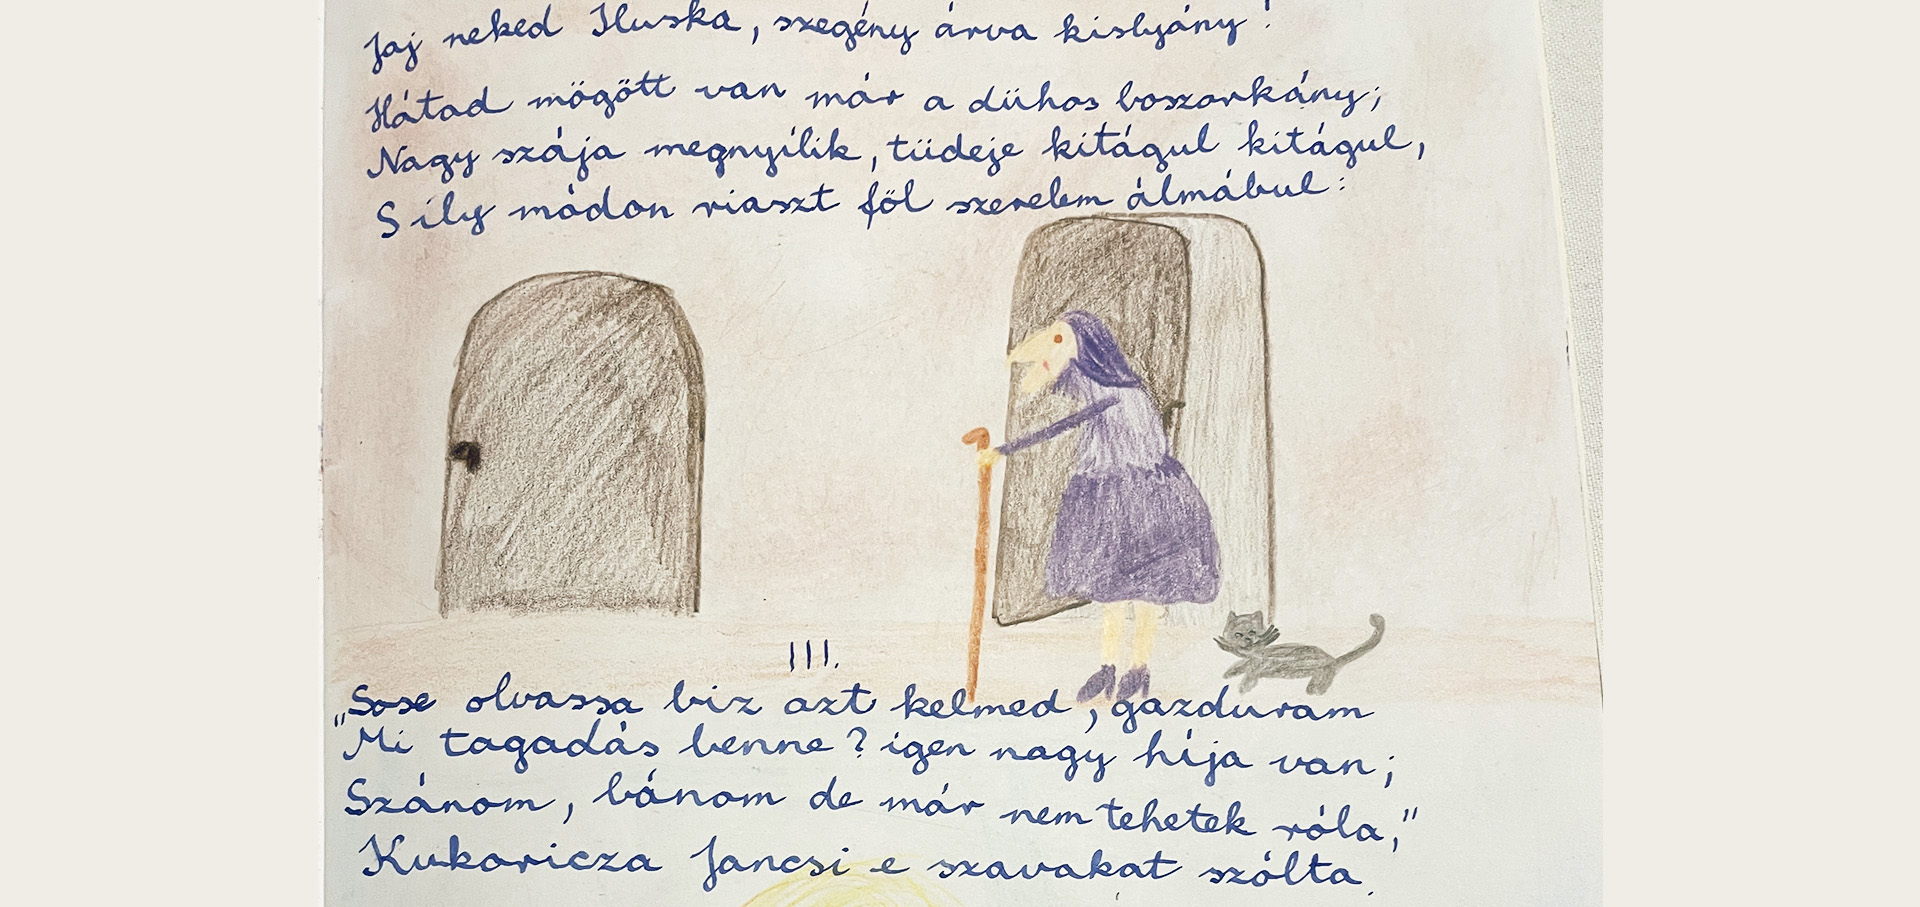 Jaj neked Iluska, szegény árva kislyány!
Hátad mögött van már a dühös boszorkány;
Nagy szája megnyílik, tüdeje kitágul kitágul,
S ily módon riaszt föl szerelem álmábul:
III.
„Sose olvassa biz azt kelmed, gazduram
Mi tagadás benne? igen nagy híja van;
Szánom, bánom de már nem tehetek róla,"
Kukoricza Jancsi e szavakat szólta.